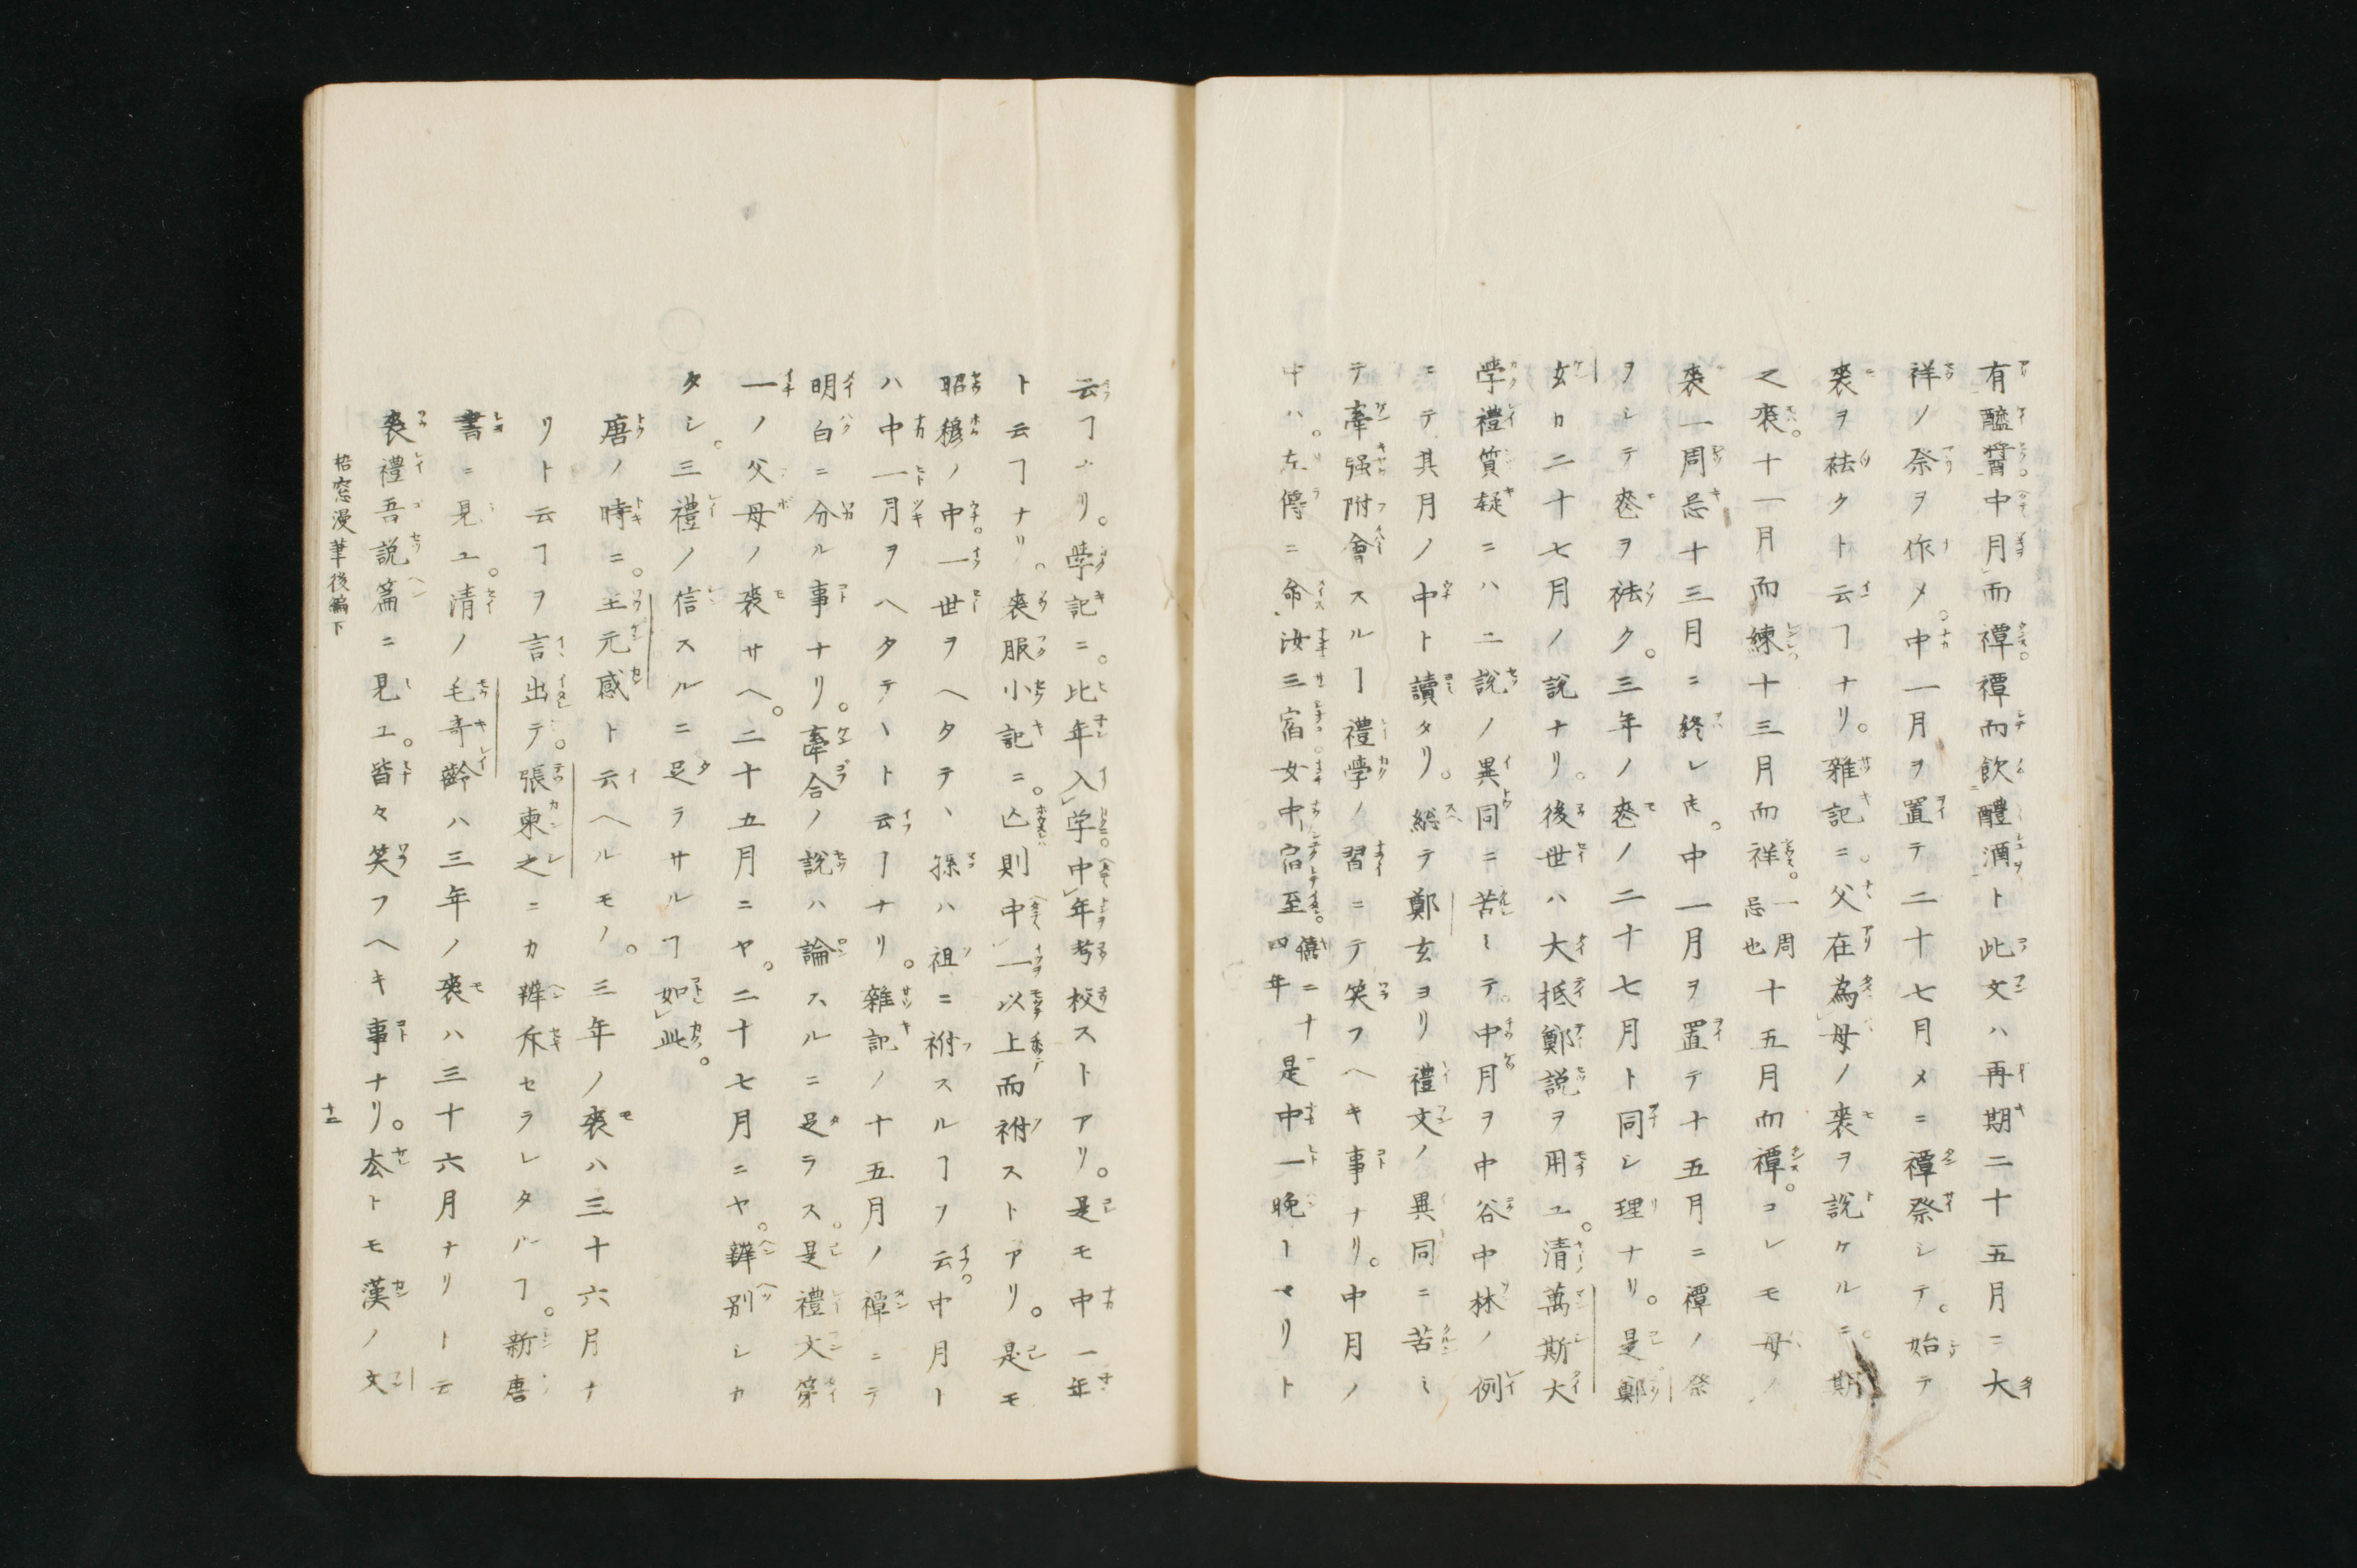 有醯醬中月而禫禫而飲醴酒ト此文ハ再期二十五月ニ大
祥ノ祭ヲ作メ中一月ヲ置テ二十七月メニ禫祭シテ。始テ
喪ヲ祛クト云ヿナリ。雜記ニ。父在為母ノ喪ヲ說ケルニ。期
之喪。十一月而練十三月而祥。一周忌也十五月而禫。コレモ母ノ
喪一周忌十三月ニ終レ𪜈。中一月ヲ置テ十五月ニ禫ノ祭
ヲシテ喪ヲ祛ク。三年ノ喪ノ二十七月ト同シ理ナリ。是鄭
玄カ二十七月ノ說ナリ。後世ハ大抵鄭説ヲ用ユ。清萬斯大
學禮質疑ニハ二說ノ異同ニ苦ミテ。中月ヲ中谷中林ノ例
ニテ其月ノ中ト讀タリ。総テ鄭玄ヨリ禮文ノ異同ニ苦ミ
テ牽强附會スルヿ禮學ノ習ニテ笑フヘキ事ナリ。中月ノ
中ハ。左傳ニ命汝三宿女中宿至僖二十四年是中一晚トマリト
云ヿナリ。學記ニ。比年入学中年考校ストアリ。是モ中一年
ト云ヿナリ。喪服小記ニ。亾則中一以上而祔ストアリ。是モ
昭穆ノ中一世ヲヘタテヽ孫ハ祖ニ祔スルヿヲ云。中月ト
ハ中一月ヲヘタテヽト云ヿナリ。雜記ノ十五月ノ禫ニテ
明白ニ分ル事ナリ。牽合ノ說ハ論スルニ足ラス。是禮文第
一ノ父母ノ喪サヘ。二十五月ニヤ。二十七月ニヤ。辨別シカ
タシ。三禮ノ信スルニ足ラサルヿ如此。
唐ノ時ニ。王元感ト云ヘルモノ。三年ノ喪ハ三十六月ナ
リト云ヿヲ言出テ。張東之ニカ辨斥セラレタルヿ。新唐
書ニ見ユ。清ノ毛奇齡ハ三年ノ喪ハ三十六月ナリトテ
喪禮吾説篇ニ見ユ。皆々笑フヘキ事ナリ。尒トモ漢ノ文
梧窓漫筆後編下
十二